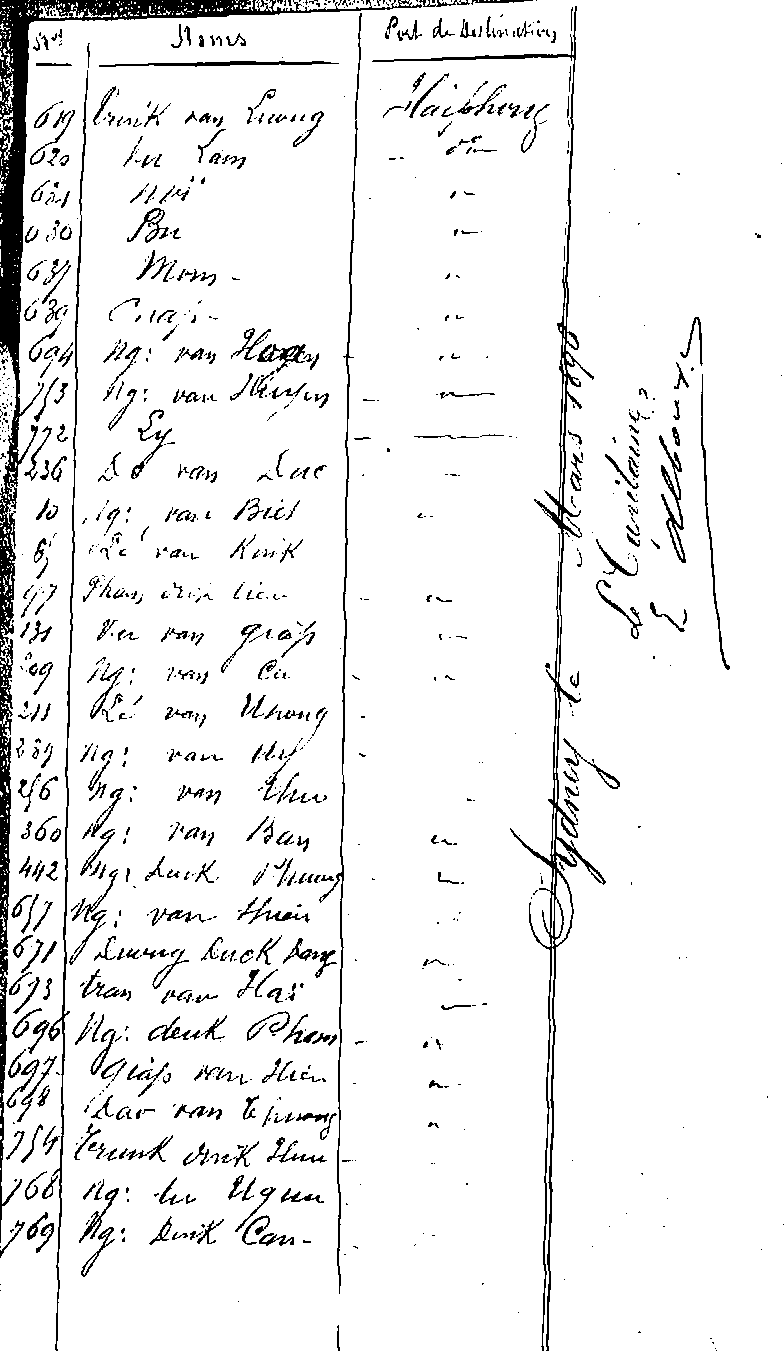 Nos Noms Port de Destination
619 Trinh van Luong Haiphong
620 tu Lam
621 Noï
630 Bu
637 Mom -
639 Cuap -
694 Ng: van Hogen
753 Ng: van Huyen
772 Ly
236 Do van Duc
10 Ng: van Biet
85 Lé van Kink
97 Phan dink lieu
131 Vu van giap
209 Ng: van Cu
211 Lé van Uhong
239 Ng: van Hy
256 Ng: van Thu
360 Ng: van Ban
442 Ng: Duck Phuong
657 Ng: van Huen
671 Duong Duck Dang
673 tran van Haï
696 Ng: deuk Pham
697 Giap van Hien
698 Dao van
754 Trunk dink Huu
768 Ng: tu Uguu
769 Ng: Dink Can -
Sydney le Mars 189
Le Capitaine
E